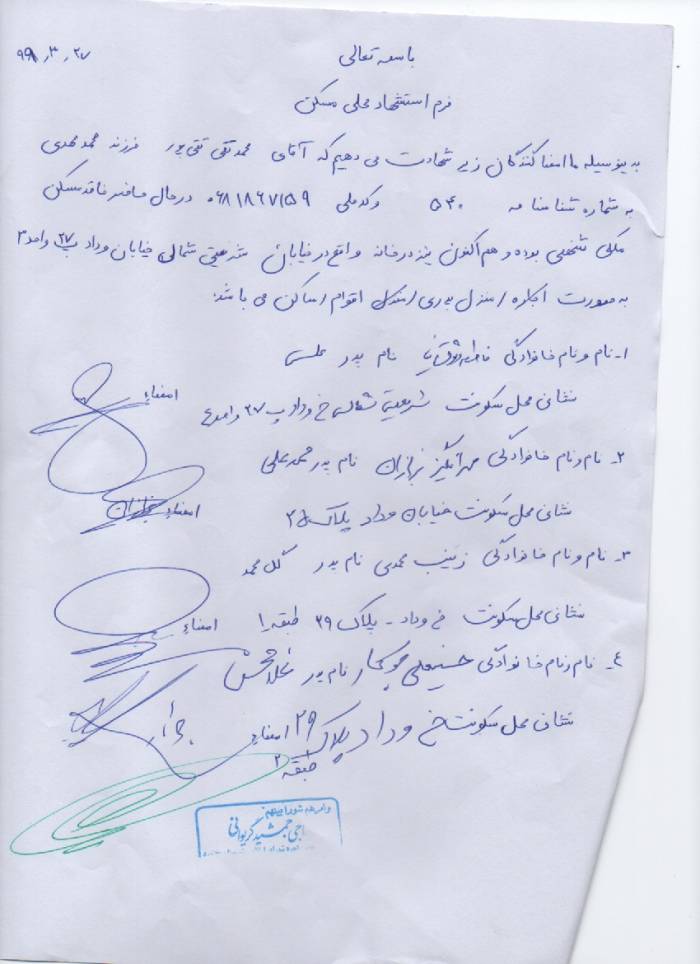 باسمه تعالی
۹۹٫۳٫۲۷
فرم استشهاد محلی مسکن
بدینوسیله ما امضا کنندگان زیر شهادت می دهیم که آقای محمد تقی تقی پور فرزند محمد مهدی
به شماره شناسنامه ۵۴۰ وکد ملی ۰۶۸۱۸۶۷۱۵۹ در حال حاضر فاقد مسکن
ملکی شخصی بوده و هم اکنون نیز در خانه واقع در خیابان شریعتی شمالی خیابان وداد پ ۲۷ واحد ۳
به صورت اجاره / منزل پدری / منزل اقوام / ساکن می باشد.
۱- نام و نام خانوادگی فاطمه نام پدر
نشانی محل سکونت شریعتی شمالی خ وداد پ ۲۷ واحد ٤ امضاء
۲- نام ونام خانوادگی مهرانگیز نام پدر محمد علی
نشانی محل سکونت خیابان وداد پلاک امضاء
۳- نام و نام خانوادگی زینب محمدی نام پدر گل محمد
نشانی محل سکونت خ وداد - پلاک ۲۹ طبقه ۱ امضاء
٤- نام و نام خانوادگی حسینعلی نام پدر غلامحسن
نشانی محل سکونت خ وداد پلاک ۲۹ امضاء
طبقه ۲
حاجی جمشید گریوانی